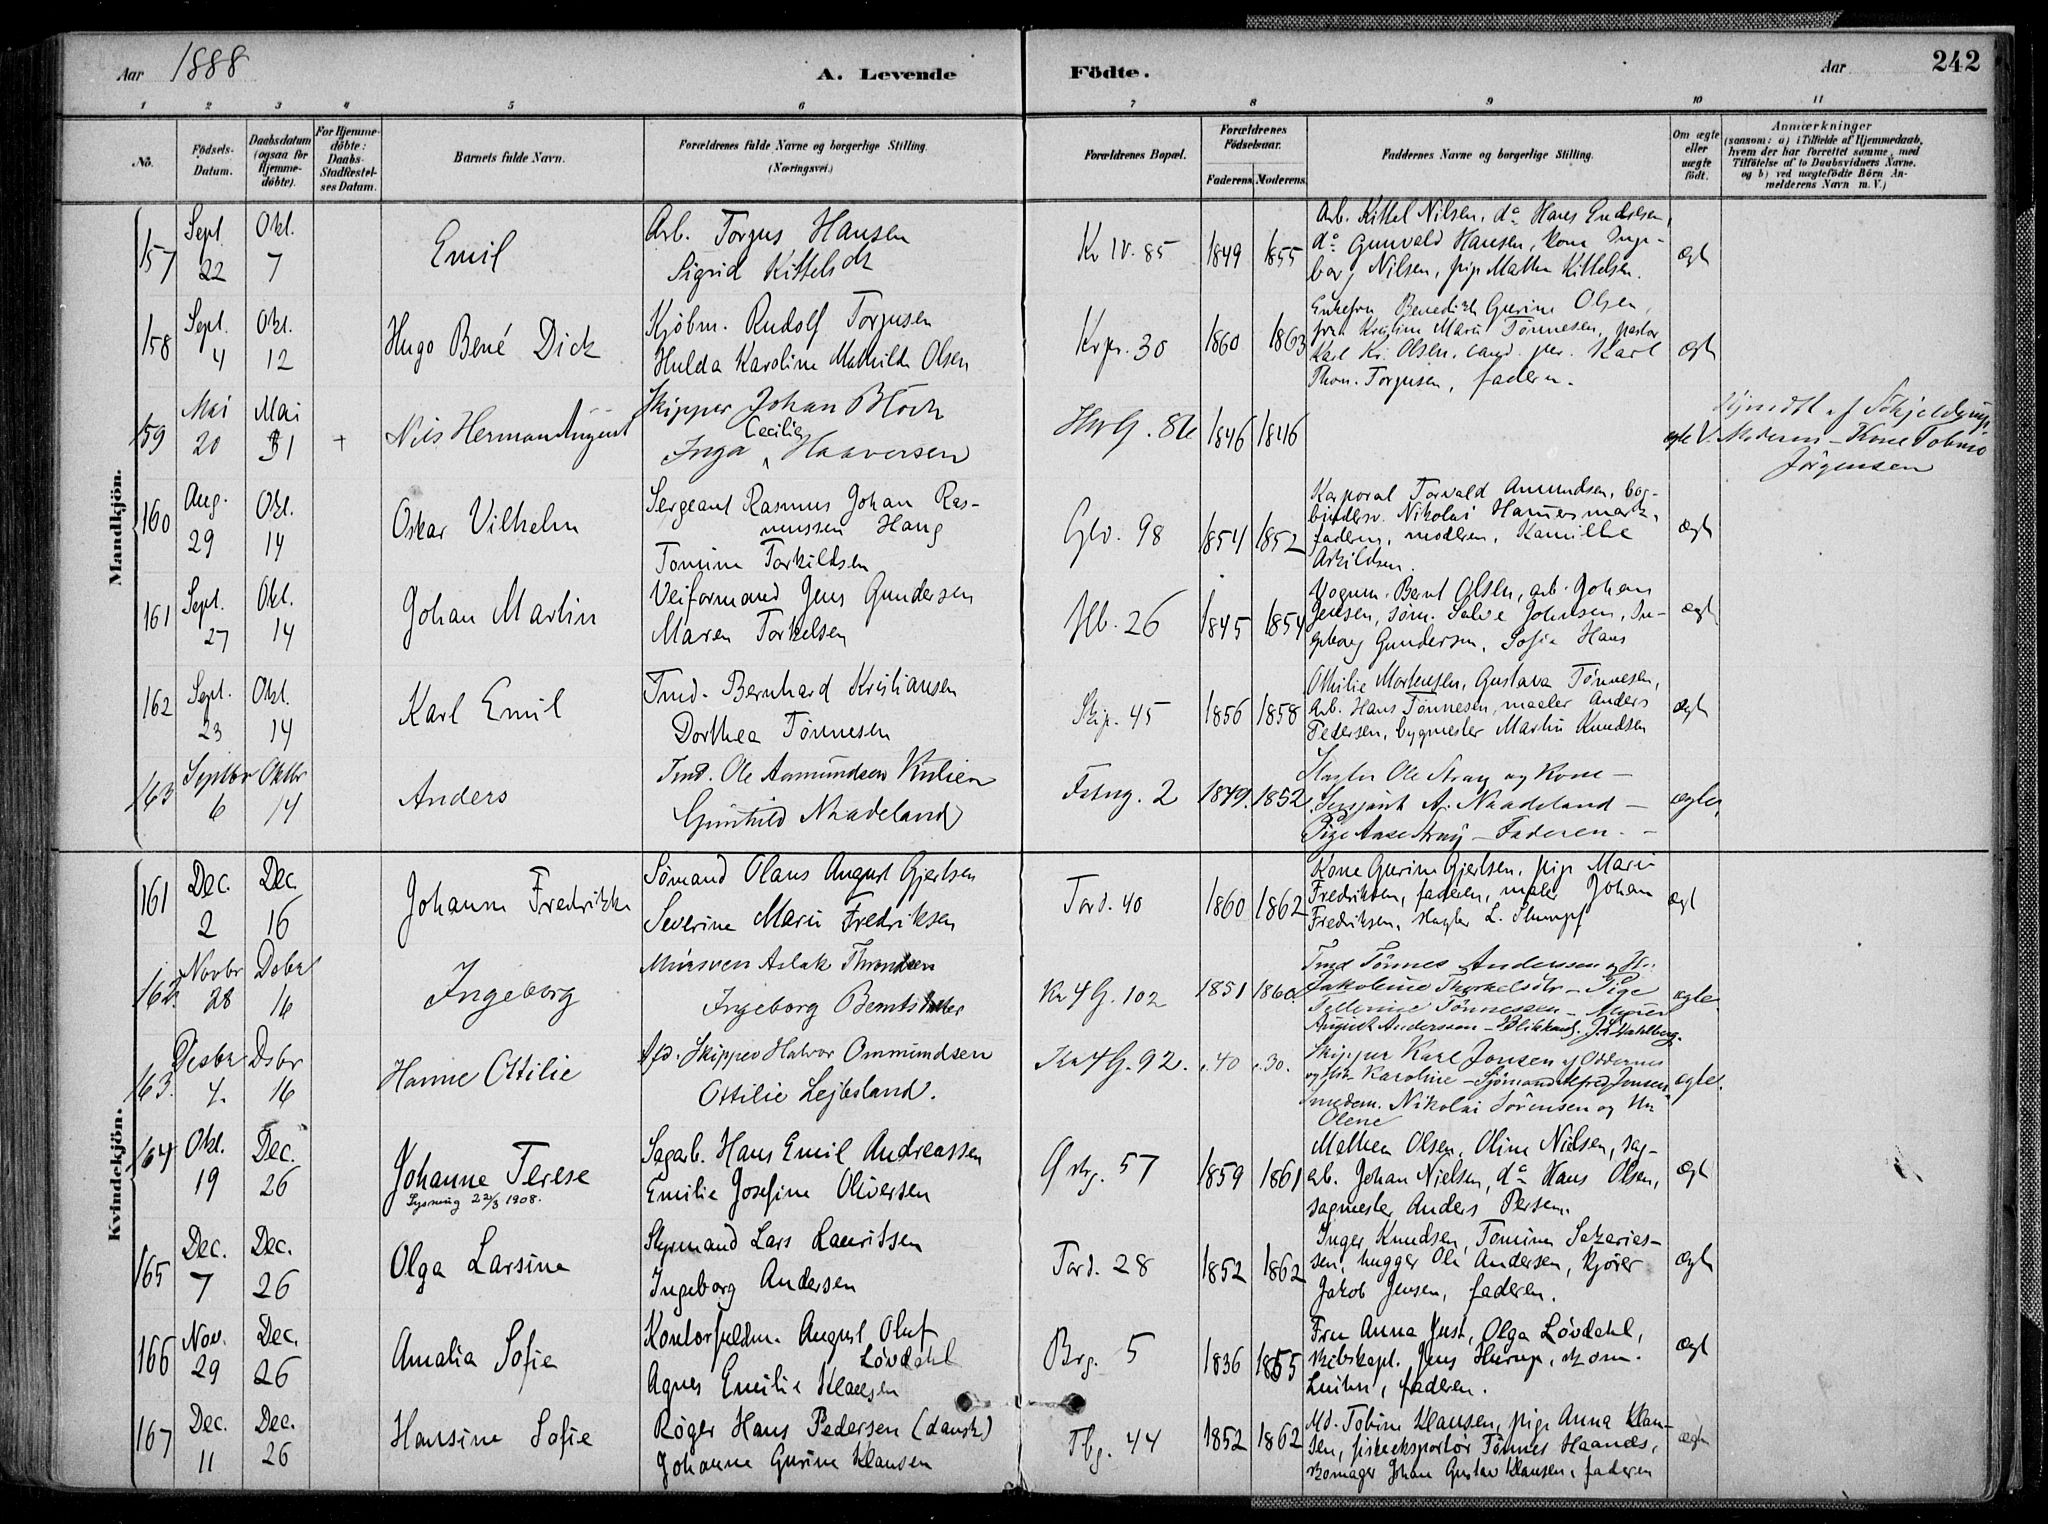 Aar 1888
A. Levende
Födte.
Aar
242
1 2 3 4 5 6 7 8 9 10 11
No.
Födsels-Datum.
Daabsdatum (ogsaa för Hjemme-döbte).
For Hjemme-döbte: Daabs-Stadfæstel-ses Datum.
Barnets fulde Navn.
Forældrenes fulde Navne og borgerlige Stilling. (Næringsvei.)
Forældrenes Bopæl.
Forældrenes Födselsaar.
Faderens. Moderens.
Faddernes Navne og borgerlige Stilling.
Om ægte eller uægte födt.
Anmærkninger
(saasom: a) i Tilfælde af Hjemmedaab,
hvem der har forrettet samme, med
Tilföielse af to Daabsvidners Navne.
og b) ved uægtefödte Börn An-
melderens Navn m. V.)
Mandkjön.
157 Sept 22 Okt. 7
Emil
Arb. Torjus Hansen
Sigrid Kittelsdt
Kv IV. 85 1849 1855
Arb. Kittel Nilsen, do Hans Endresen,
do Gunvald Hansen, kone Inge-
borg Nilsen, pige Mathea Kittelsen.
ægt
158 Sept. 4 Okt. 12
Hugo Bené Dick
Kjöbm. Rudolf Torjusen
Hulda Karoline Mathilde Olsen
Krpr. 30 1860 1863
Enkefru Benedikte Gurine Olsen,
fru Kristine Marie Tönnesen, pastor
Karl Kr. Olsen, cand. per. Karl
Thom. Torjusen, faderen.
ægt
159 Mai 20 Mai 31 +
Nils Herman August
Skipper Johan Bloch
Inga Cecilie Haaversen
1846 1846
ægte
Hjmdt af Schjelderup
V. Moderen - Kone Tobine
Jörgensen
160 Aug. 29 Okt. 14
Oskar Vilhelm
Sergeant Rasmus Johan Ras-
mussen Haug
Tomine Torkildsen
Glv. 98 1854 1852
Korporal Torvald Amundsen, bog-
bindersv. Nikolai Hammersmark,
faderen, moderen, Kamilla
Askildsen.
ægt
161 Sept. 27 Okt. 14
Johan Martin
Veiformand Jens Gundersen
Maren Torkelsen
Hb. 26 1845 1854
Vognm. Bernt Olsen, arb. Johan
Jensen, söm. Salve Johnsen, In-
geborg Gundersen, Sofie Hans
ægt
162 Sept. 23 Okt. 14
Karl Emil
Tmd. Bernhard Kristiansen
Dorthea Tönnesen
Skip. 45 1856 1858
Othilie Mortensen, Gustava Tönnesen,
Arb. Hans Tönnesen, maler Anders
Pedersen, bygmester Martin Knudsen
ægt
163 Septbr 6 Oktbr 14
Anders
Tmd. Ole Asmundsen Kulien
Gunhild Naadeland
Fstng. 2 1849. 1852
Slagter Ole Stray og Kone -
Sersjant A. Naadeland -
Pige Aase Stray - Faderen. -
ægte,
Kvindekjön.
161 Dec. 2 Dec. 16
Johanne Fredrikke
Sömand Olaus August Gjertsen
Severine Marie Fredriksen
Tord. 40 1860 1862
Kone Gurine Gjertsen, pige Marie
Fredriksen, faderen, maler Johan
Fredriksen, slagter L. Stumpf
ægt
162 Novbr 28 Dcbr 16
Ingeborg
Mursven Aslak Thronsen
Ingeborg Berntsdatter
Kv 4 G. 102 1851 1860.
Tmd Tönnes Anderssen og H.
Jakobine Thorkelsdtr - Pige
Tellerine Tönnessen - Murer
August Anderssen - Blikkensl. J. Stahlberg.
ægte
163. Desbr 4. Dsbr 16
Hanne Ottilie
Afd. Skipper Halvor Ommundsen
Ottilie Lejbsland.
Kv 4 G. 92. . 40 . 30.
Skipper Karl Jonsen af Oddernes
og Htr Karoline - Sjömand Alfred Jonsen
Smedem. Nikolai Sörensen og Hu
Olene
ægte.
164 Okt. 19 Dec. 26
Johanne Terese
Lysning 22/3 1908.
Sagarb. Hans Emil Andreassen
Emilie Josefine Oliversen
Östrg. 57 1859 1861
Mathea Olsen, Oline Nielsen, sag-
arb. Johan Nielsen, do Hans Olsen,
sagmester Anders Persen.
ægt
165 Dec. 7 Dec. 26
Olga Larsine
Styrmand Lars Lauritsen
Ingeborg Andersen
Tord. 28 1852 1862
Inger Knudsen, Tomine Sakarias-
sen, hugger Ole Andersen, kjörer
Jakob Jensen, faderen.
ægt
166 Nov. 29 Dec. 26
Amalia Sofie
Kontorfuldm. August Oluf
Lövdahl
Agnes Emilie Klausen
Brg. 5 1836 1855
Fru Anna Just, Olga Lövdahl,
skibskapt. Jens Hurup, skom.
faderen.
ægt
167 Dec. 11 Dec. 26
Hansine Sofie
Röger Hans Pedersen (dansk)
Johanne Gurine Klausen
Tbg. 44 1852 1862
Md. Tobine Klausen, pige Anna Klau-
sen, fiskeeksportör Tönnes Haanes,
Bomager Johan Gustav Klausen, faderen
ægt